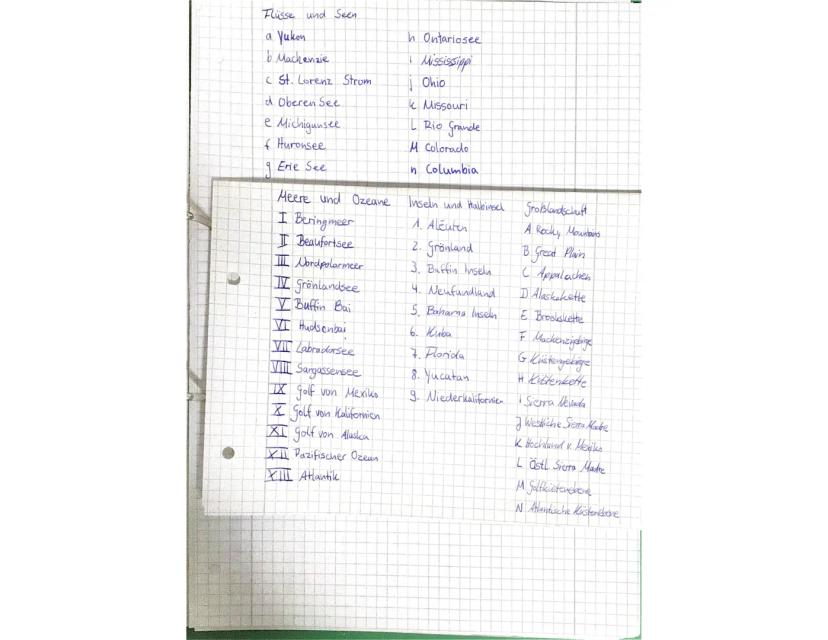 Flüsse und Seen
a Yukon
b Mackenzie
c St. Lorenz Strom
d Oberen See
e Michigansee
f Huronsee
g Erie See
h Ontariosee
i Mississippi
j Ohio
k Missouri
L Rio Grande
M Colorado
n Columbia
Meere und Ozeane
I Beringmeer
II Beaufortsee
III Nordpolarmeer
IV Grönlandsee
V Buffin Bai
VI Hudsonbai
VII Labradorsee
VIII Sargassensee
IX Golf von Mexiko
X Golf von Kalifornien
XI Golf von Alaska
XII Pazifischer Ozean
XIII Atlantik
Inseln und Halbinsel
1. Alëuten
2. Grönland
3. Buffin Inseln
4. Neufundland
5. Bahama Inseln
6. Kuba
7. Florida
8. Yucatan
9. Niederkalifornien
Großlandschaft
A Rocky Mountains
B Great Plain
C Appalachen
D Alaskakette
E Brookskette
F Mackenziegebirge
G Küstengebirge
H Küstenkette
i Sierra Nevada
J Westliche Sierra Madre
K Hochland v. Mexiko
L Östl. Sierra Madre
M Golfküstenebene
N Atlantische Küstenebene